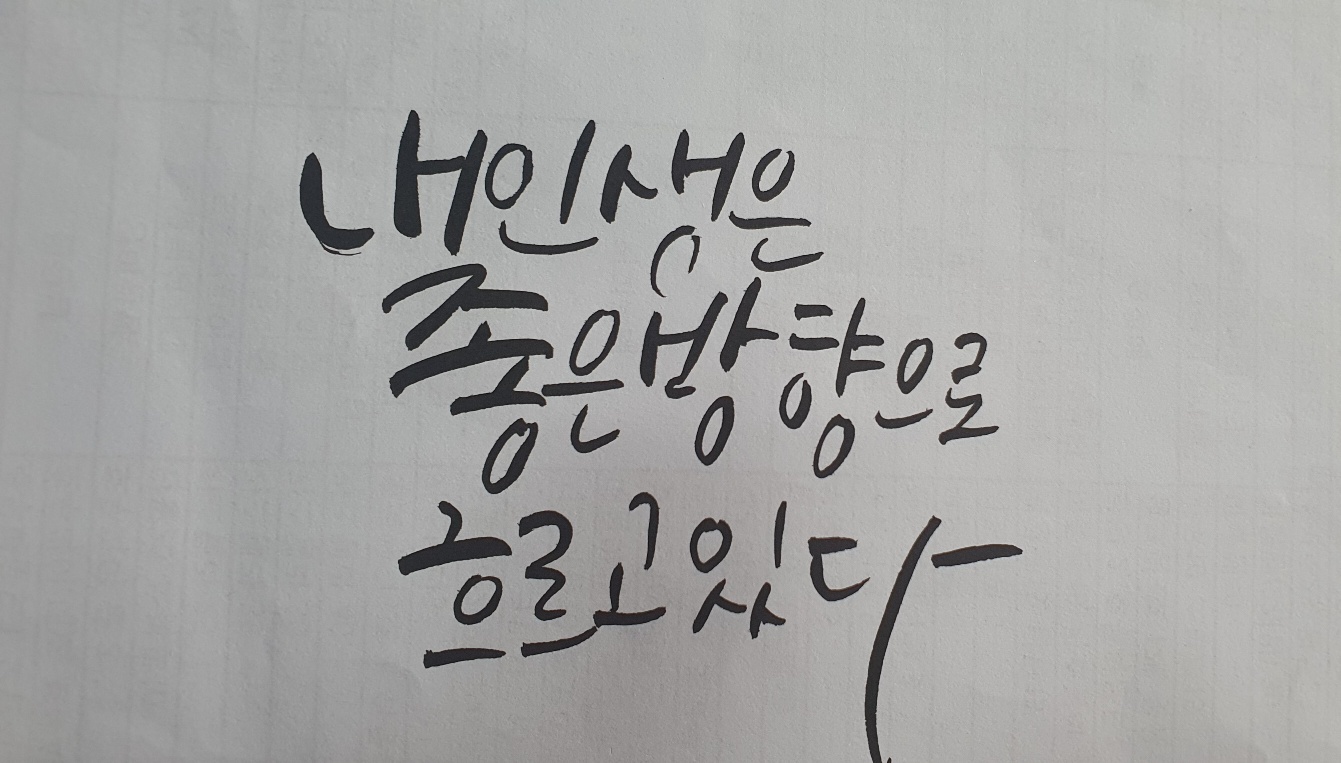 내인생은
좋은방향으로
흐르고있다